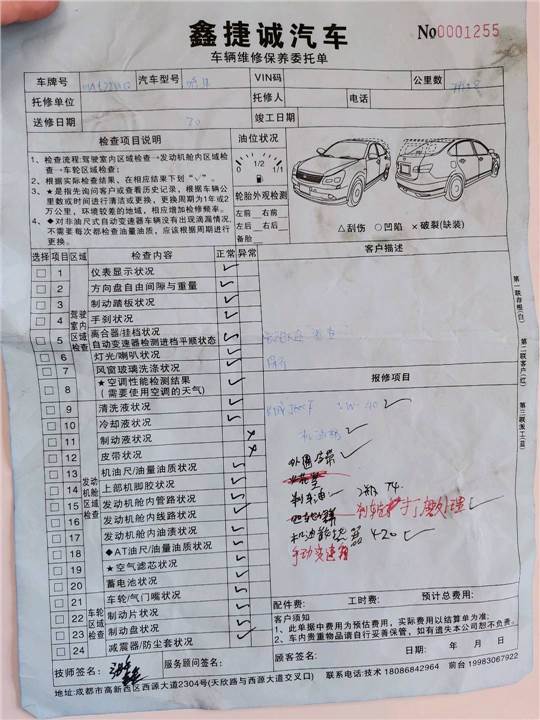 鑫捷诚汽车
车辆维修保养委托单
No0001255
车牌号 汽车型号 VIN码 公里数
托修单位 托修人 电话
送修日期 30 竣工日期
检查项目说明 油位状况
1、检查流程:驾驶室内区域检查→发动机舱内区域检
查→车轮区域检查。
2、根据实际检查结果、在相应结果下划“√”。
3、★是指先询问客户或查看历史记录，根据车辆公
里数或时间进行清洁或更换，更换周期为1年或2
万公里，环境较差的地域，相应增加检修频率。
4、◆对非油尺式自动变速器车辆没有出现滴漏情况,
不需要每次都检查油量油质，应该根据周期进行
更换。
0 1/2 1/1
轮胎外观检测
左前 右前
左后 右后
备胎
△刮伤 ○凹陷 ×破裂(缺装)
选择 项目 区域 检查内容 正常 异常 客户描述
驾驶室内区域检查
1 仪表显示状况 ✓
2 方向盘自由间隙与重量 ✓
3 制动踏板状况 ✓
4 手刹状况 ✓
5 离合器/挂档状况
自动变速器检测进档平顺状态 ✓
6 灯光/喇叭状况 ✓
7 风窗玻璃洗涤状况 ✓
8 ★空调性能检测结果
(需要使用空调的天气) ✓
报修项目
发动机舱区域检查
9 清洗液状况 ✓
10 冷却液状况 ✓
11 制动液状况 ×
12 皮带状况 ×
13 机油尺/油量油质状况 ✓
14 上部机脚胶状况 ✓
15 发动机舱内管路状况 ✓
16 发动机舱内线路状况 ✓
17 发动机舱内油渍状况 ✓
18 ◆AT油尺/油量油质状况 ✓
19 ★空气滤芯状况 ✓
20 蓄电池状况 ✓
车轮区域检查
21 车轮/气门嘴状况 ✓
22 制动片状况 ✓
23 制动盘状况 ✓
24 减震器/防尘套状况 ✓
机油格 ✓
刹车油
420 ✓
手动变速箱
配件费: 工时费: 预计总费用:
客户须知
1、此单据中费用为预估费用，实际费用以结算单为准;
2、车内贵重物品请自行妥善保管，如有遗失本公司恕不负责。
技师签名: 服务顾问签名: 顾客签名: 日期: 年 月 日
地址:成都市高新西区西源大道2304号(天欣路与西源大道交叉口) 联系电话:技术 18086842964 前台 19983067922
第一联存根(白)
第二联客户(红)
第三联派工(蓝)